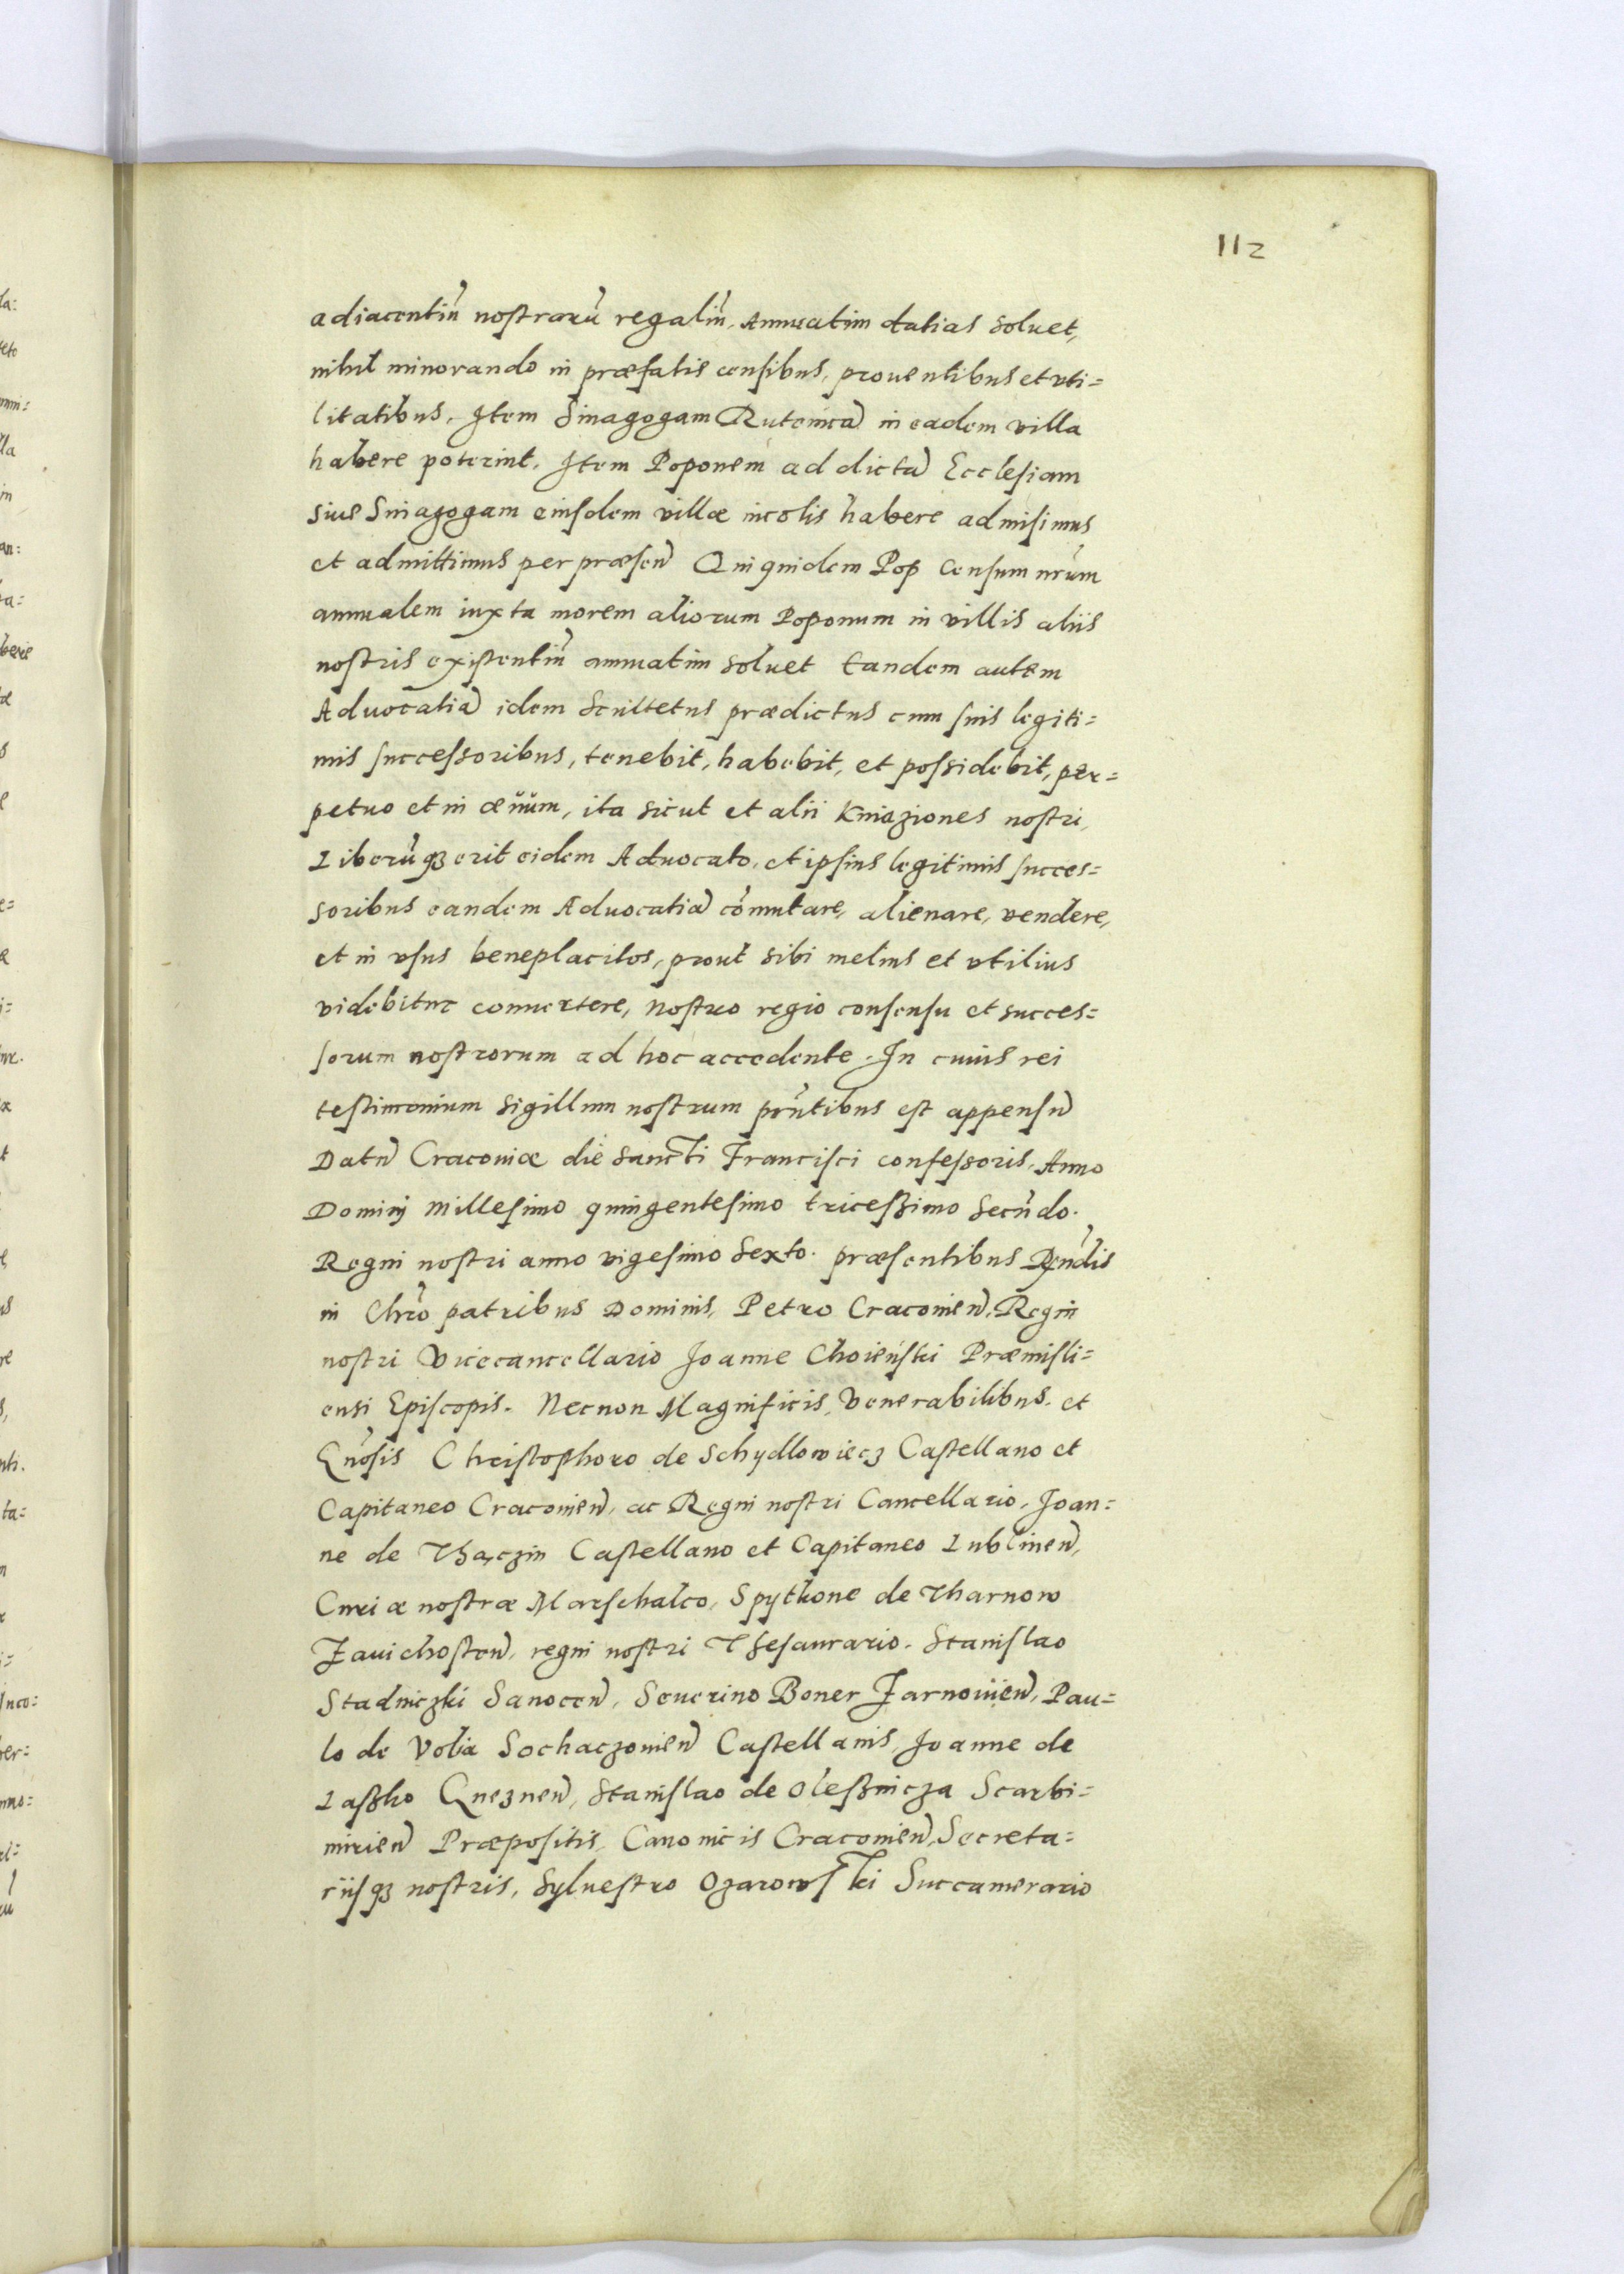 112
adiacentiū nostrarū regaliū, Annuatim datias soluet,
nihil minorando in præfatis censibus, prouentibus et vti=
litatibus. Item Sinagogam Rutenicā in eadem villa
habere poterint. Item Poponem ad dictā Ecclesiam
siue Sinagogam eiusdem villæ incolis habere admisimus
et admittimus per præsen̄ Qui quidem Pop censum nr̄um
annualem iuxta morem aliorum Poponum in villis aliis
nostris existentiū annuatim soluet Eandem autem
Aduocatiā idem Scultetus prædictus cum suis legiti=
mis successoribus, tenebit, habebit, et possidebit, per=
petuo et in æuum, ita sicut et alii Kniaziones nostri,
Liberūqꝫ erit eidem Aduocato, et ipsius legitimis succes=
soribus eandem Aduocatiā cōmutare, alienare, vendere,
et in vsus beneplacitos, prout sibi melius et vtilius
videbitur conuertere, nostro regio consensu et succes=
sorum nostrorum ad hoc accedente. In cuius rei
testimonium sigillum nostrum pn̄tibus est appensū
Datū Cracouiæ die Sancti Francisci confessoris, Anno
Dominj Millesimo quingentesimo tricessimo Secūdo.
Regni nostri anno vigesimo Sexto. præsentibus Rn̄dis
in Chr̄o patribus Dominis, Petro Cracouien̄, Regni
nostri Vicecancellario Joanne Choieński Præmisli=
ensi Episcopis. Necnon Magnificis, Venerabilibus. et
Gn̄osis Christophoro de Schydlowiecz Castellano et
Capitaneo Cracouien̄, ac Regni nostri Cancellario, Joan=
ne de Thaczin Castellano et Capitaneo Lublinen̄,
Curiæ nostræ Marschalco, Spytkone de Tharnow
Zauichosten̄, regni nostri Thesaurario. Stanislao
Stadniczki Sanocen̄, Seuerino Boner Zarnouien̄, Pau=
lo de Volia Sochaczouien̄ Castellanis, Joanne de
Laszko Gneznen̄, Stanislao de Olessnicza Scarbi=
mirien̄ Præpositis, Canonicis Cracouien̄, Secreta=
riisqꝫ nostris, Syluestro Ozarowski Succamerario